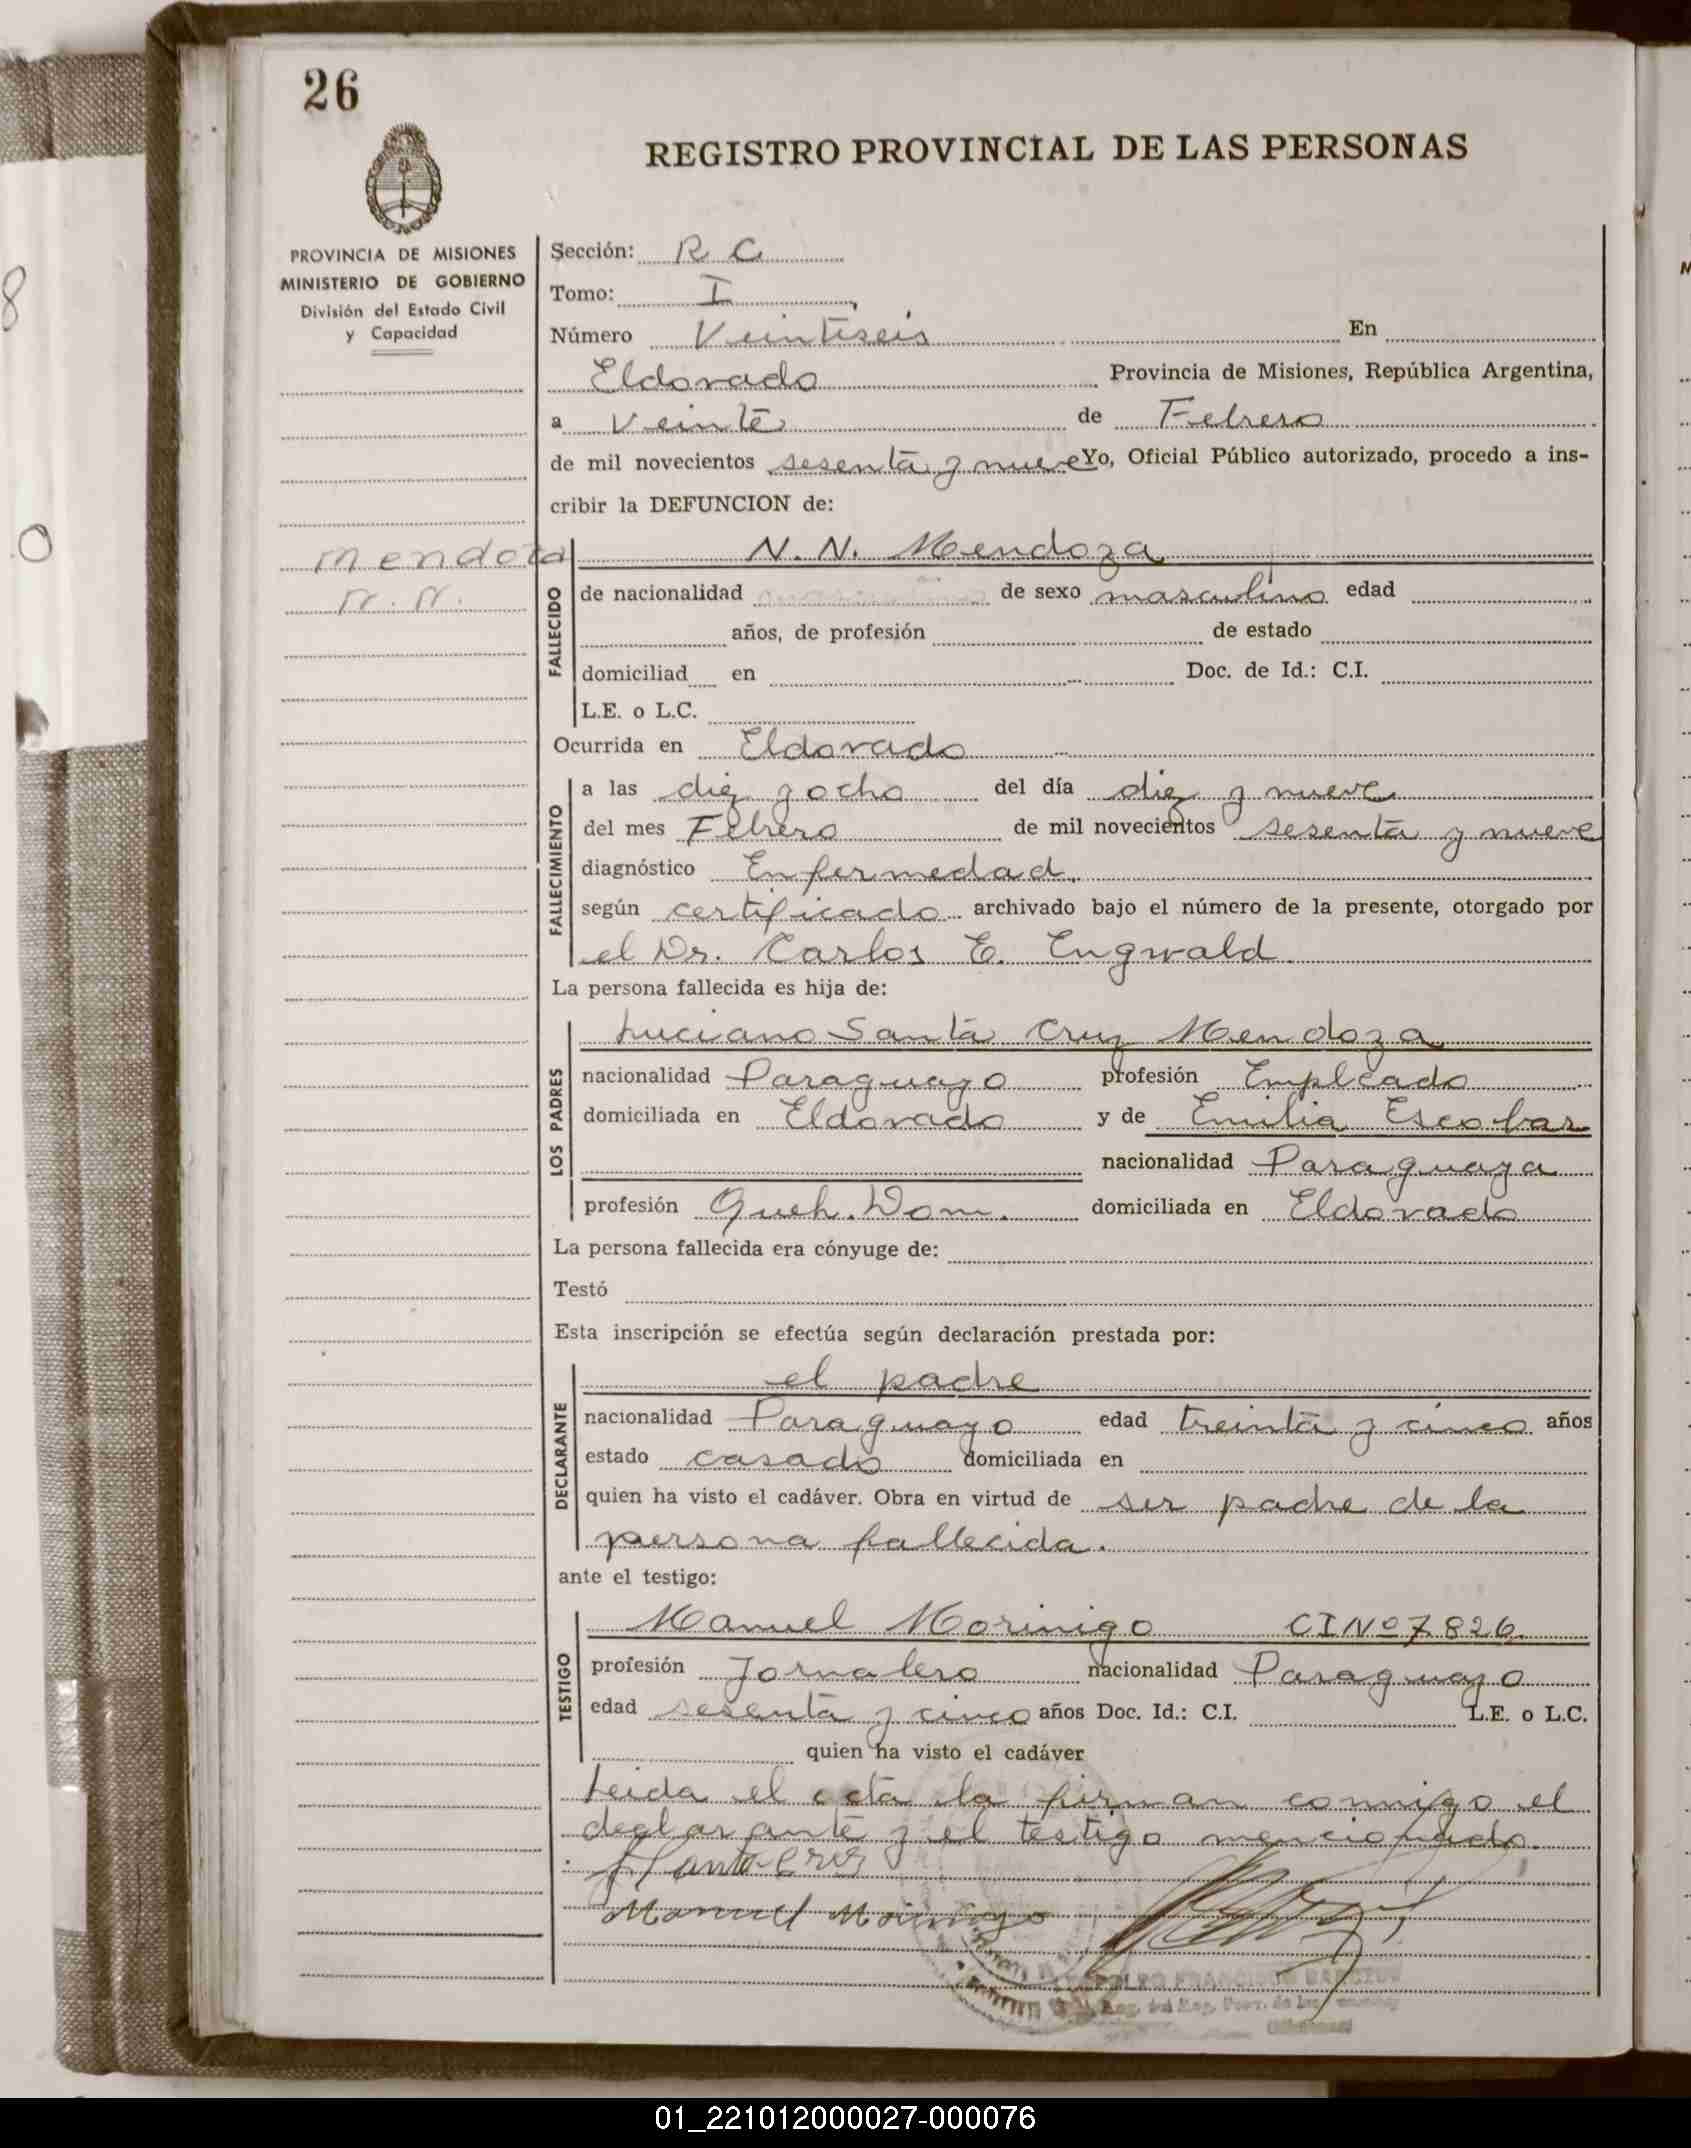 26
REGISTRO PROVINCIAL DE LAS PERSONAS
PROVINCIA DE MISIONES
MINISTERIO DE GOBIERNO
División del Estado Civil
y Capacidad
Sección: R C
Tomo: I
Número Veintiseis En
Eldorado Provincia de Misiones, República Argentina,
a Veinte de Febrero
de mil novecientos sesenta y nueve Yo, Oficial Público autorizado, procedo a ins-
cribir la DEFUNCION de:
Mendoza
N. N.
FALLECIDO
N. N. Mendoza
de nacionalidad de sexo masculino edad
años, de profesión de estado
domiciliad en Doc. de Id.: C.I.
L.E. o L.C.
Ocurrida en Eldorado
FALLECIMIENTO
a las diez y ocho del día diez y nueve
del mes Febrero de mil novecientos sesenta y nueve
diagnóstico Enfermedad.
según certificado archivado bajo el número de la presente, otorgado por
el Dr. Carlos E. Engwald.
La persona fallecida es hija de:
LOS PADRES
Luciano Santa Cruz Mendoza
nacionalidad Paraguayo profesión Empleado
domiciliada en Eldorado y de Emilia Escobar
nacionalidad Paraguaya
profesión Queh. Dom. domiciliada en Eldorado
La persona fallecida era cónyuge de:
Testó
Esta inscripción se efectúa según declaración prestada por:
DECLARANTE
el padre
nacionalidad Paraguayo edad treinta y cinco años
estado casado domiciliada en
quien ha visto el cadáver. Obra en virtud de ser padre de la
persona fallecida.
ante el testigo:
TESTIGO
Manuel Morinigo CI Nº 7826
profesión Jornalero nacionalidad Paraguayo
edad sesenta y cinco años Doc. Id.: C.I. L.E. o L.C.
quien ha visto el cadáver
Leida el acta la firman conmigo el
declarante y el testigo mencionado.
Santa Cruz
Manuel Morinigo
FRANCISCO
01_221012000027-000076